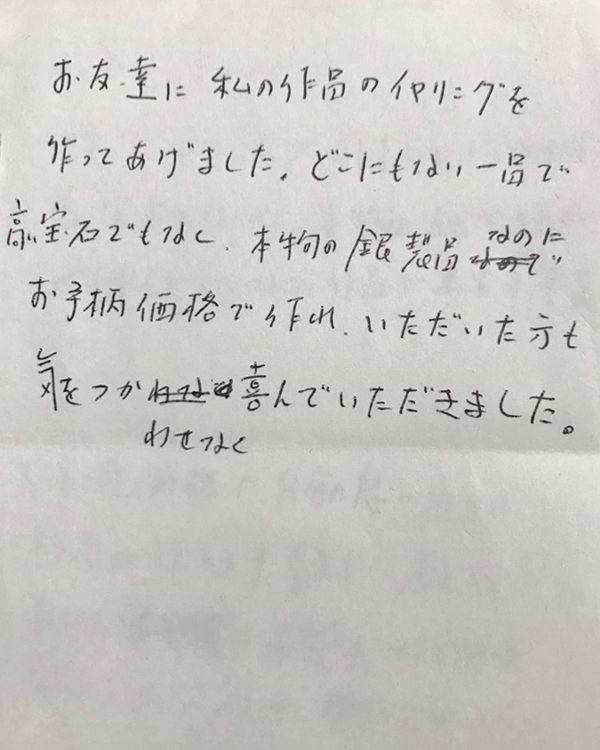 お友達に私の作品のイヤリングを
作ってあげました。どこにもない一品で
高い宝石でもなく、本物の銀製品なのに
お手柄価格で作れ、いただいた方も
気をつかわせなく喜んでいただきました。